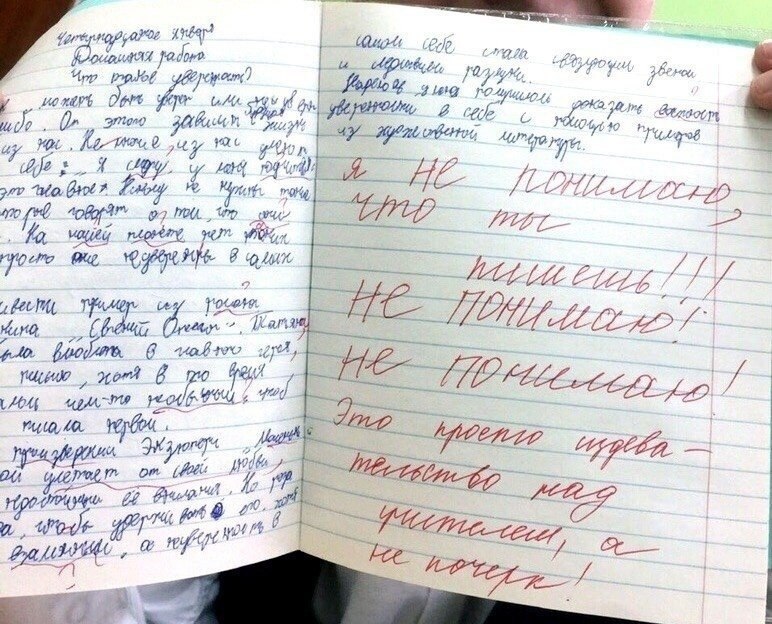 Четырнадцатое января
Домашняя работа
Что такое уверенность?
может быть уверен или
либо. От этого зависит жизнь
из нас. Не многие из нас умеют
себе: "Я
это главное. Никому не нужны
которые говорят о том, что они
. На нашей планете нет таких
просто не уверены в самих
привести пример из романа
"Евгений Онегин". Татьяна
была влюблена в главного героя,
письмо, хотя в то время
чем-то необычным, чтоб
писала первой.
произведении Экзюпери "Маленький
улетает от своей любви,
её внимания. Но
, чтобы удержи его, хотя
взаимный, а неуверенность в
самой себе стала связующим звеном
и  разлуки.
Надеюсь, у меня получилось доказать важность
уверенности в себе с помощью примеров
из художественной литературы.
Я не понимаю,
что ты
пишешь!!!
Не понимаю!
Не понимаю!
Это просто издева-
тельство над
учителем, а
не почерк!